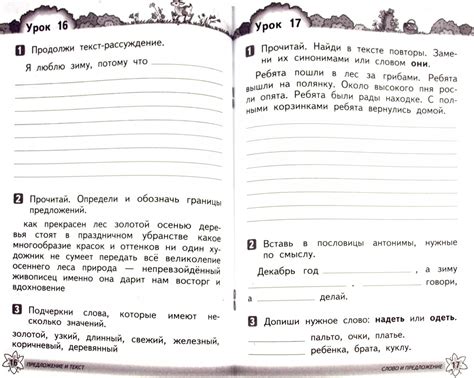 Урок 16
1 Продолжи текст-рассуждение.
Я люблю зиму, потому что
2 Прочитай. Определи и обозначь границы
предложений.
как прекрасен лес золотой осенью дере-
вья стоят в праздничном убранстве какое
многообразие красок и оттенков ни один ху-
дожник не сумеет передать всё великолепие
осеннего леса природа — непревзойдённый
живописец именно она дарит нам восторг и
вдохновение
3 Подчеркни слова, которые имеют не-
сколько значений.
золотой, узкий, длинный, свежий, тяжёлый,
коричневый, деревянный
16 ПРЕДЛОЖЕНИЕ И ТЕКСТ
Урок 17
1 Прочитай. Найди в тексте повторы. Заме-
ни их синонимами или словом они.
Ребята пошли в лес за грибами. Ребята
вышли на полянку. Около высокого пня рос-
ли опята. Ребята были рады находке. С пол-
ными корзинками ребята вернулись домой.
2 Вставь в пословицы антонимы, нужные
по смыслу.
Декабрь год , а зиму
. говори,
а делай.
3 Допиши нужное слово: надеть или одеть.
пальто, очки, платье.
ребёнка, брата, куклу.
СЛОВО И ПРЕДЛОЖЕНИЕ 17